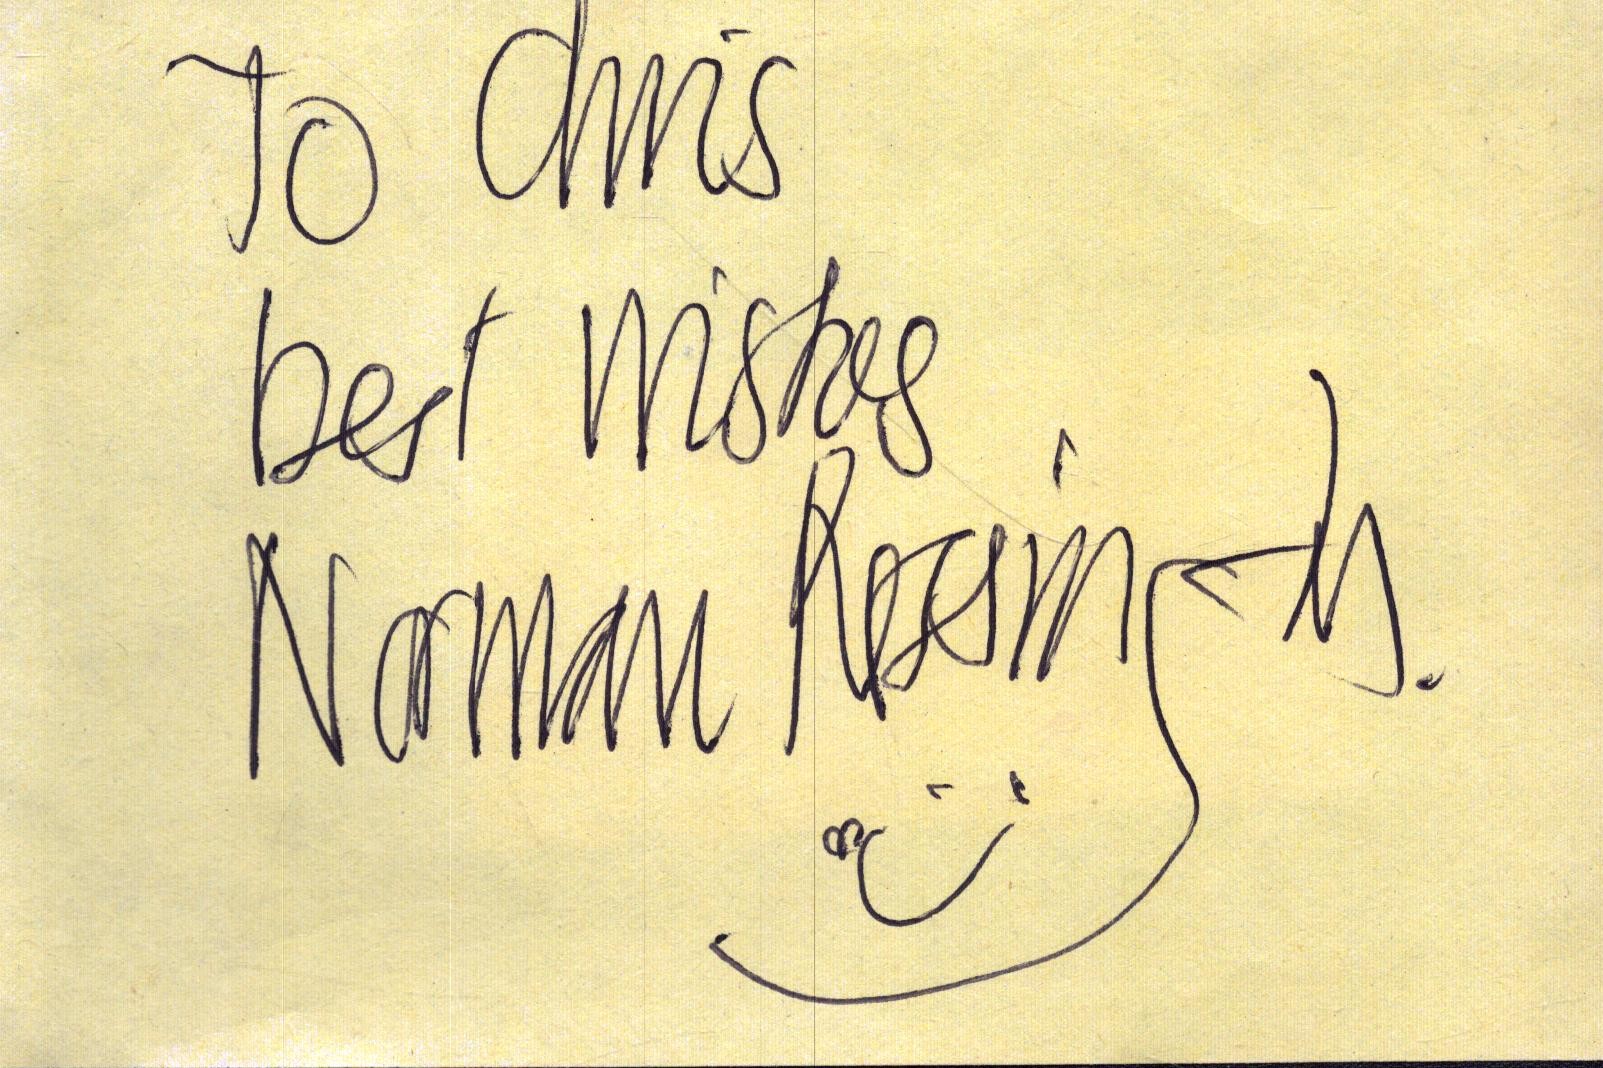 To Chris
best wishes
Norman Rossington.